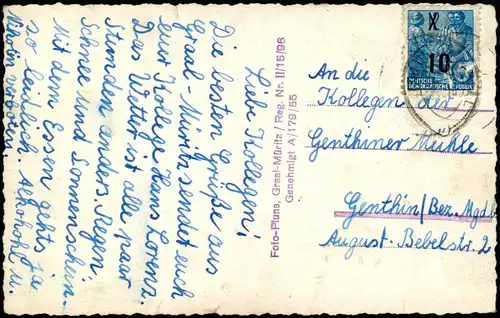 Liebe Kollegen!
Die besten Grüße aus
Graal-Müritz sendet euch
eur Kollege Hans Lorenz.
Das Wetter ist alle paar
Stunden anders. Regen
Schnee und Sonnenschein.
Mit dem Essen gehts ja
so leidlich.
Foto-Pluns, Graal-Müritz / Reg. Nr. II/15/96
Genehmigt A/179/55
10
DEUTSCHE
DEMOKRATISCHE REPUBLIK
An die
Kollegen der
Genthiner Mühle
Genthin/Bez. Mgdb
August-Bebelstr. 2